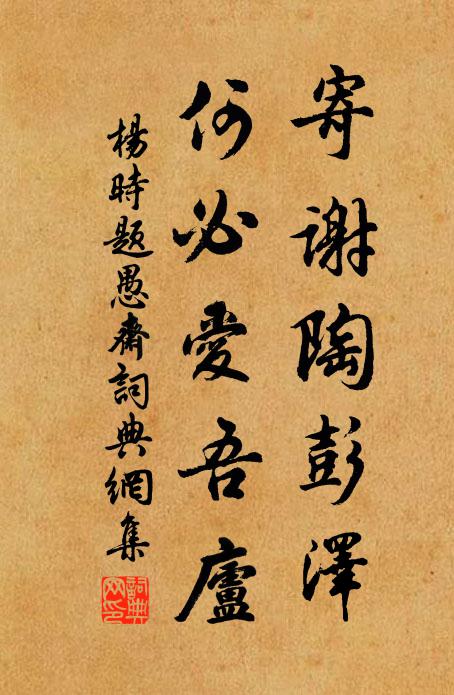 寄謝陶彭澤
何必愛吾廬
楊時題愚齋詞典網集
詞典網印